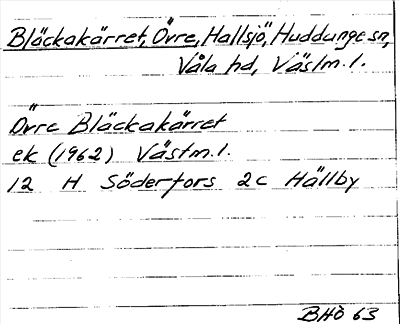 Bläckakärret, Övre, Hallsjö, Huddunge sn,
Våla hd, Västm.l.
Övre Bläckakärret
ek (1962) Västm.l.
12 H Söderfors 2c Hällby
BHÖ 63